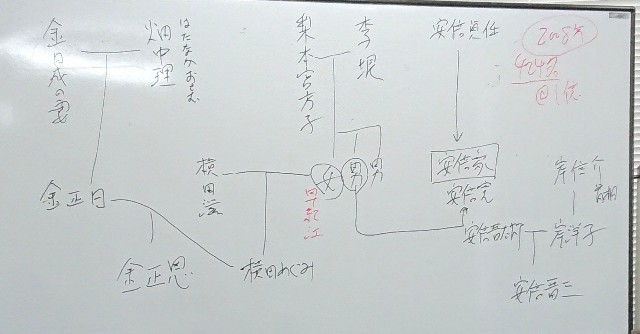 金日成の妻
畑中理
はたなかおさむ
梨本宮方子
李垠
安倍貞任
424名
@1億
横田滋
女
男
男
早紀江
安倍家
安倍寛
岸信介
首相
金正日
安倍晋太郎
岸洋子
金正恩
横田めぐみ
安倍晋三